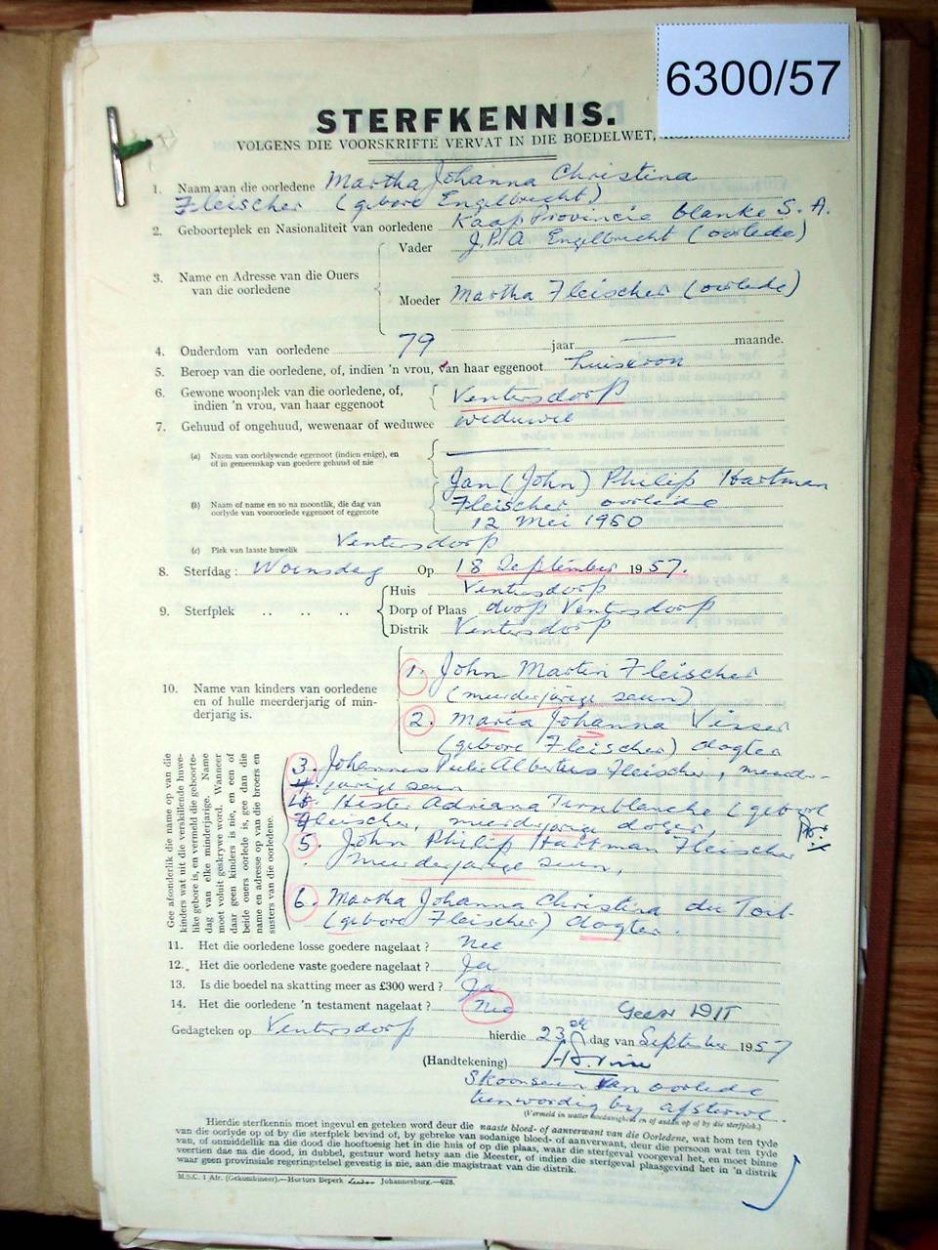 6300/57
STERFKENNIS.
VOLGENS DIE VOORSKRIFTE VERVAT IN DIE BOEDELWET,
1. Naam van die oorledene Martha Johanna Christina
Fleischer (gebore Engelbrecht)
2. Geboorteplek en Nasionaliteit van oorledene Kaap Provincie blanke S. A.
3. Name en Adresse van die Ouers van die oorledene
Vader J.P.A. Engelbrecht (oorlede)
Moeder Martha Fleischer (oorlede)
4. Ouderdom van oorledene 79 jaar — maande.
5. Beroep van die oorledene, of, indien 'n vrou, van haar eggenoot huisvrou
6. Gewone woonplek van die oorledene, of,
indien 'n vrou, van haar eggenoot Ventersdorp
7. Gehuud of ongehuud, wewenaar of weduwee weduwie
(a) Naam van oorblywende eggenoot (indien enige), en
of in gemeenskap van goedere gehuud of nie —
(b) Naam of name en so na moontlik, die dag van
oorlyde van vooroorlede eggenoot of eggenote
Jan (John) Philip Hartman
Fleischer oorlede
12 Mei 1950
(c) Plek van laaste huwelik Ventersdorp
8. Sterfdag: Woensdag Op 18 September 1957.
9. Sterfplek .. .. ..
Huis Ventersdorp
Dorp of Plaas dorp Ventersdorp
Distrik Ventersdorp
10. Name van kinders van oorledene
en of hulle meerderjarig of min-
derjarig is.
1. John Martin Fleischer
(meerderjarige seun)
2. Maria Johanna Visser
(gebore Fleischer) dogter
Gee afsonderlik die name op van die
kinders wat uit die verskillende huwe-
like gebore is, en vermeld die geboorte-
dag van elke minderjarige. Name
moet voluit geskrywe word. Wanneer
daar geen kinders is nie, en een of
beide ouers oorlede is, gee dan die
name en adresse op van die broers en
susters van die oorledene.
3. Johannes Petrus Albertus Fleischer, meerder-
jarige seun
4. Hester Adriana Terreblanche (gebore
Fleischer, meerderjarige dogter,
5. John Philip Hartman Fleischer
meerderjarige seun,
6. Martha Johanna Christina du Toit
(gebore Fleischer) dogter.
11. Het die oorledene losse goedere nagelaat? Nee
12. Het die oorledene vaste goedere nagelaat? Ja
13. Is die boedel na skatting meer as £300 werd? Ja
14. Het die oorledene 'n testament nagelaat? Nee
Gedagteken op Ventersdorp hierdie 23 dag van September 1957
(Handtekening)
Skoonseun van oorlede
teenwoordig by afsterwe.
(Vermeld in watter hoedanigheid en of anders op of by die sterfplek.)
Hierdie sterfkennis moet ingevul en geteken word deur die naaste bloed- of aanverwant van die Oorledene, wat hom ten tyde
van die oorlyde op of by die sterfplek bevind of, by gebreke van sodanige bloed- of aanverwant, deur die persoon wat ten tyde
van, of onmiddellik na die dood die hooftoesig het in die huis of op die plaas, waar die sterfgeval voorgeval het, en moet binne
veertien dae na die dood, in dubbel, gestuur word hetsy aan die Meester, of indien die sterfgeval plaasgevind het in 'n distrik
waar geen provinsiale regeringsetel gevestig is nie, aan die magistraat van die distrik.
M.S.C. 1 Afr. (Gekombineer).—Hortors Beperk Johannesburg.—628.